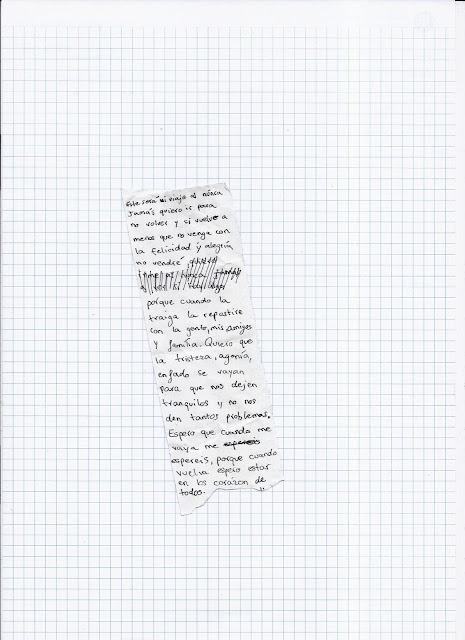 Este será mi viaje al nunca
Jamás quiero ir para
no volver y si vuelvo a
menos que no venga con
la felicidad y alegría
no vendré,
porque cuando la
traiga la repartire
con la gente, mis amigos
y familia. Quiero que
la tristeza, agonía,
enfado se vayan
para que nos dejen
tranquilos y no nos
den tantos problemas.
Espero que cuando me
vaya me espereis
espereis, porque cuando
vuelva espero estar
en los corazon de
todos.